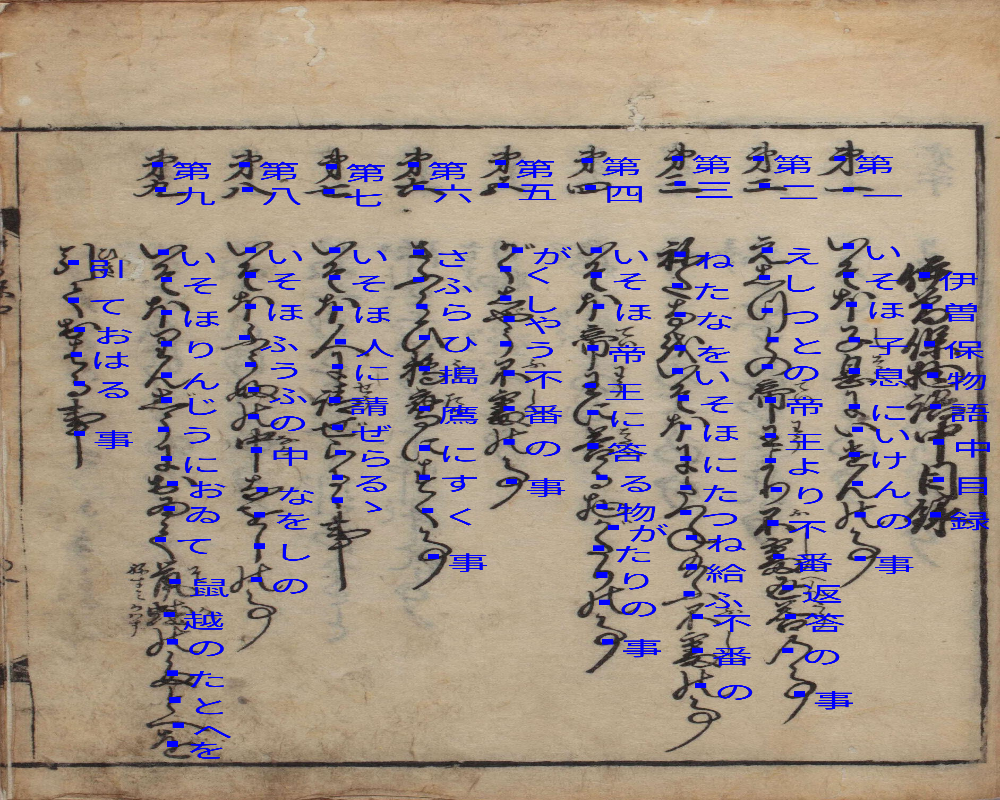 伊曽保物語中目録
第一 いそほ子息にいけんの事
第二 えしつとの帝王より不番返答の事
第三 ねたなをいそほにたつね給ふ不番の
第四 いそほ帝王に答る物がたりの事
第五 がくしやう不番の事
第六 さふらひ搗鷹にすく事
第七 いそほ人に請ぜらるゝ
第八 いそほふうふの中なをしの
第九 いそほりんじうにおゐて鼠越のたとへを
引ておはる事